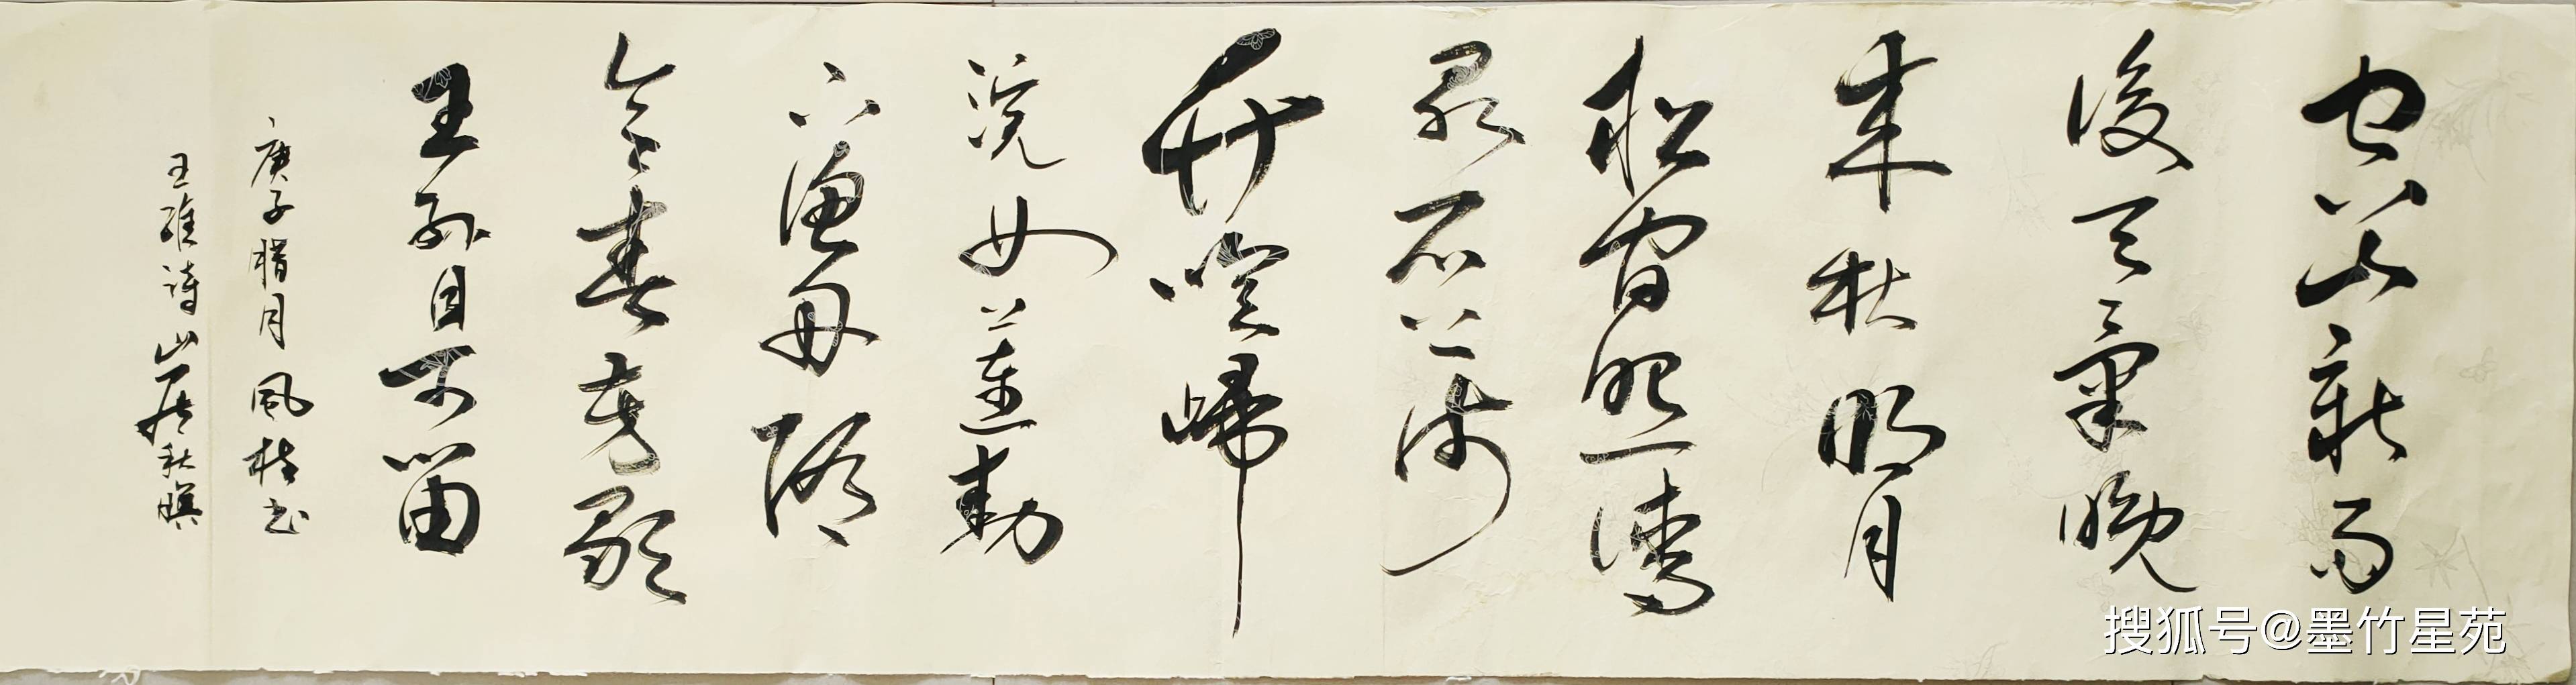 空山新雨
後天氣晚
来秋明月
松间照清
泉石上流
竹喧歸
浣女蓮動
下渔舟随
意春芳歇
王孙自可留
庚子腊月风桂书
王維诗山居秋暝
搜狐号@墨竹星苑